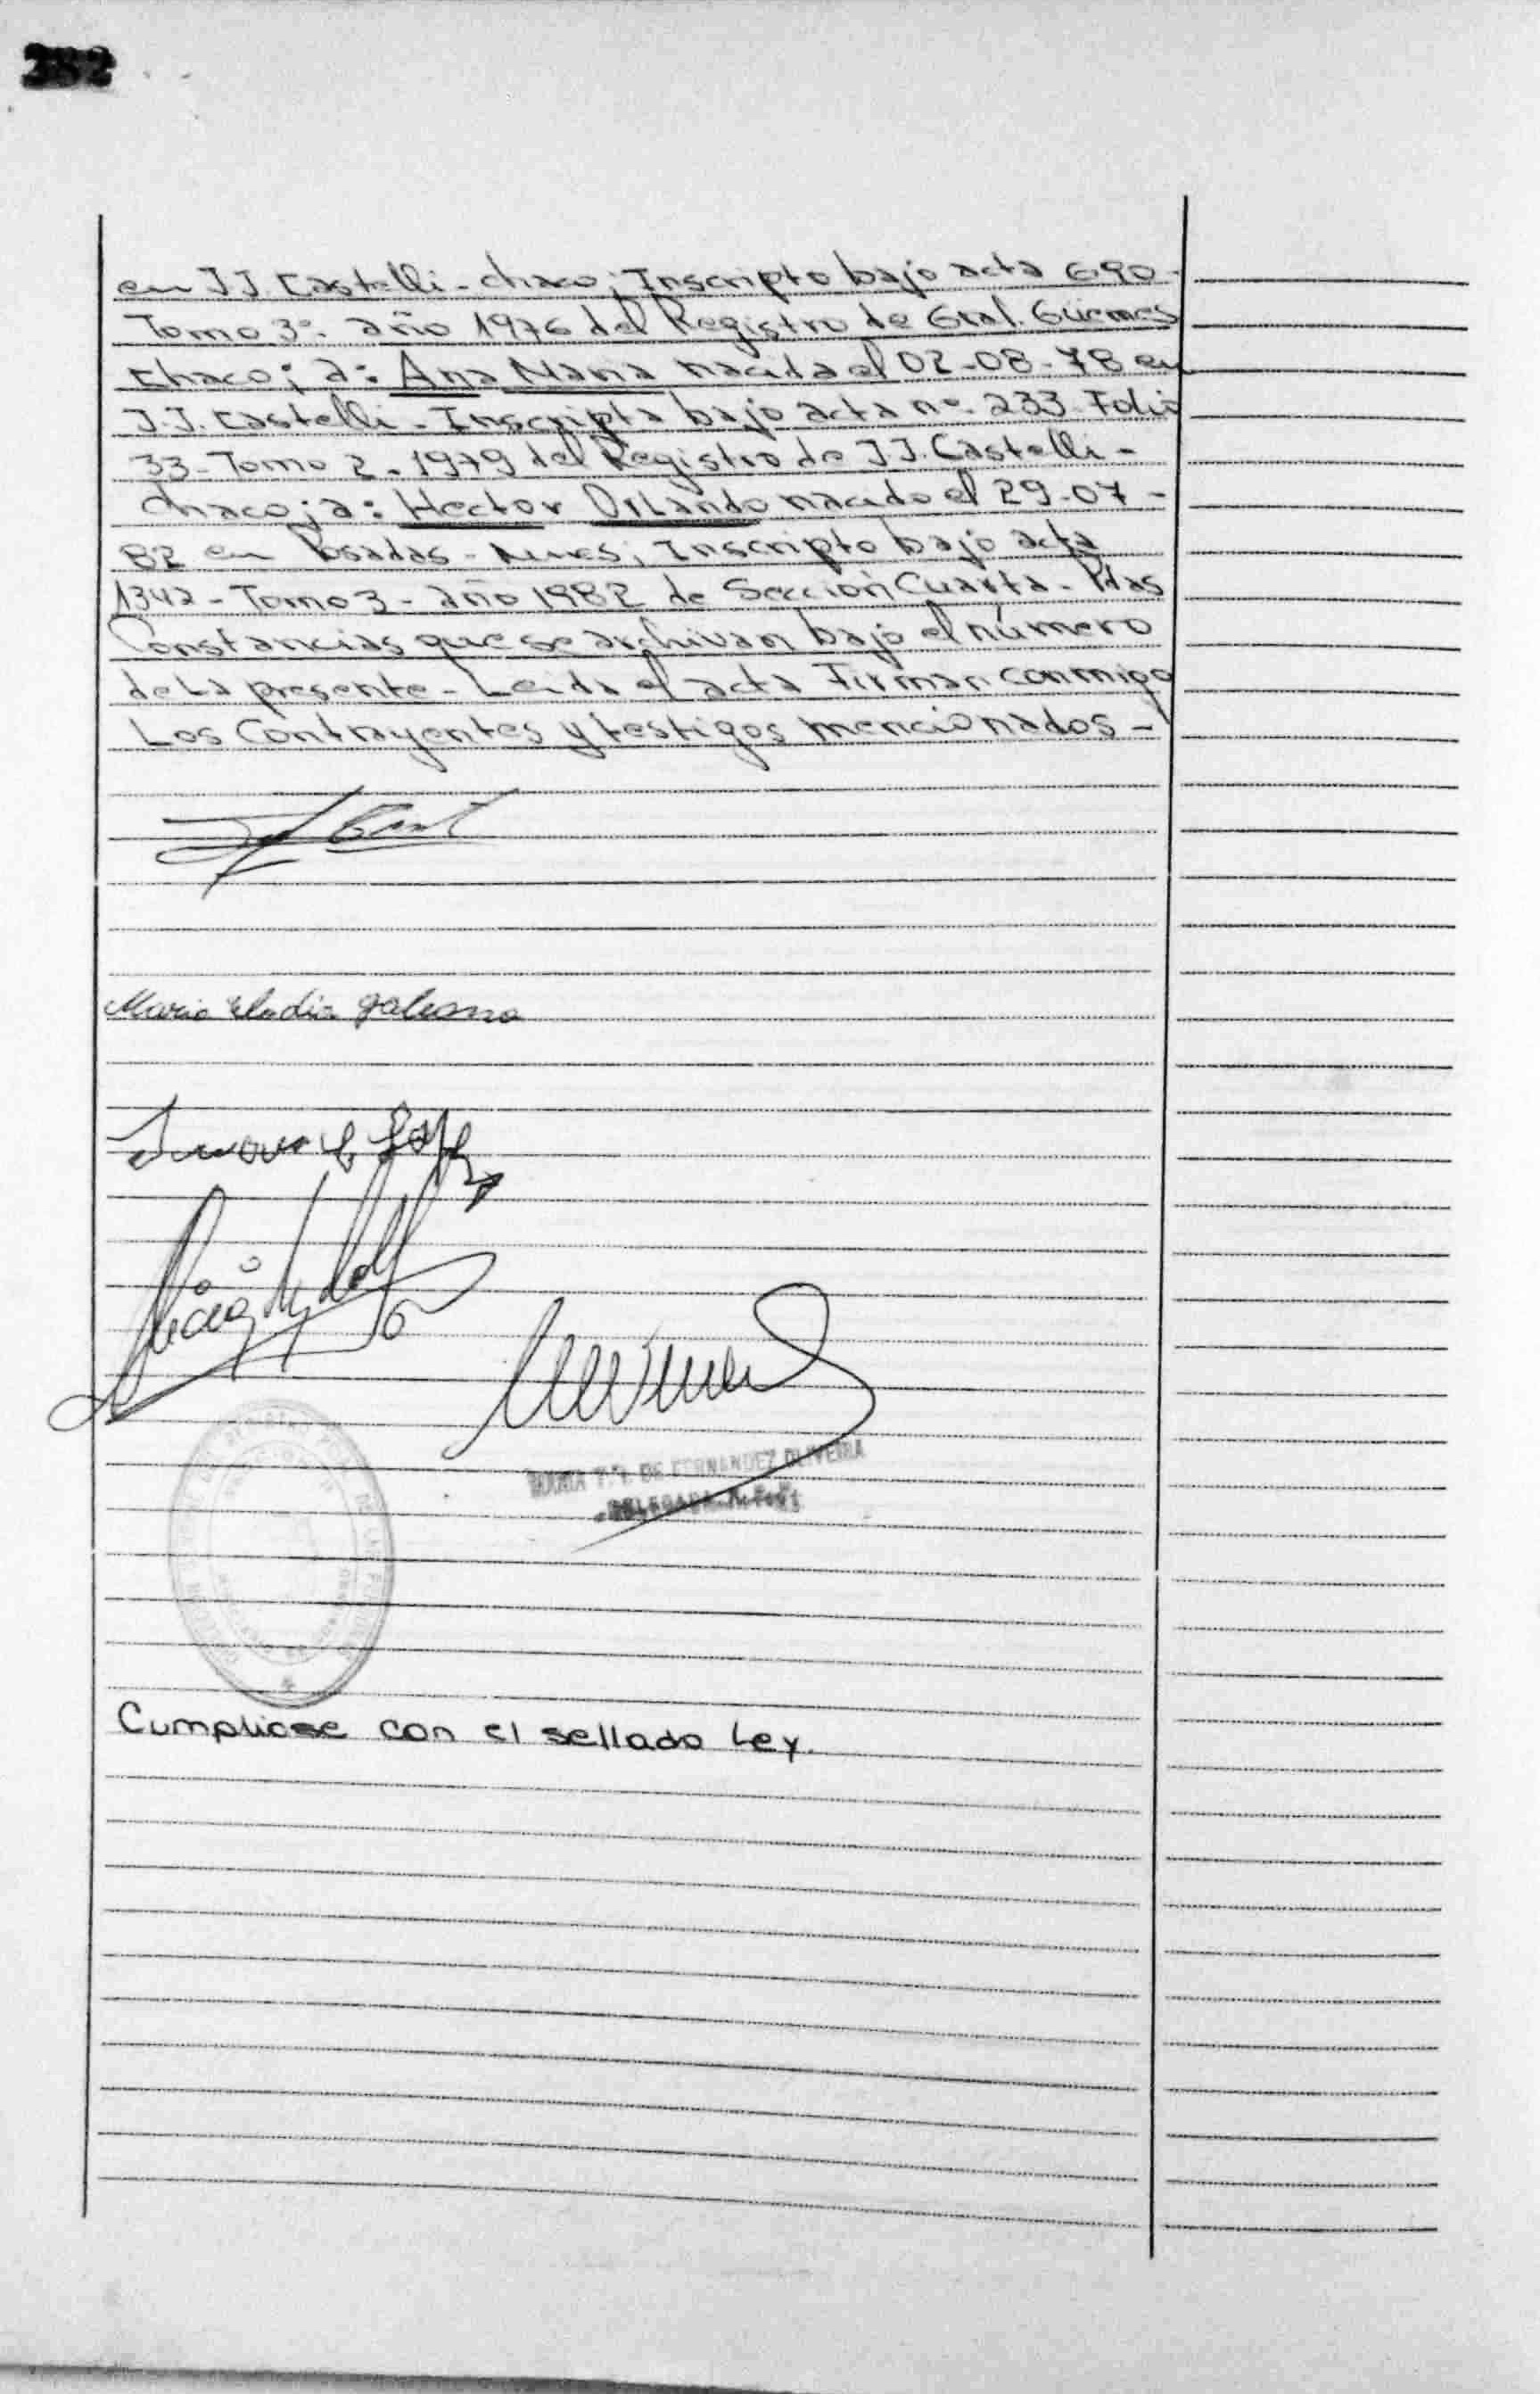 en J.J. Castelli - Chaco; Inscripto bajo acta 690-
Tomo 3º. año 1976 del Registro de Gral. Güemes
Chaco; a: Ana Maria nacida el 02-08-78 en
J.J. Castelli - Inscripta bajo acta nº 233 Folio
33-Tomo 2-1979 del Registro de J.J. Castelli -
Chaco; a: Hector Orlando nacido el 29-07-
82 en Posadas - Mnes; Inscripto bajo acta
1342 - Tomo 3 - año 1982 de Sección Cuarta - Pdas
Constancias que se archivan bajo el número
de la presente - Leida el acta Firman conmigo
Los Contrayentes y testigos mencionados -
Maria Eladia Galeano
DE FERNANDEZ OLIVEIRA
DELEGADA
Cumpliose con el sellado Ley.